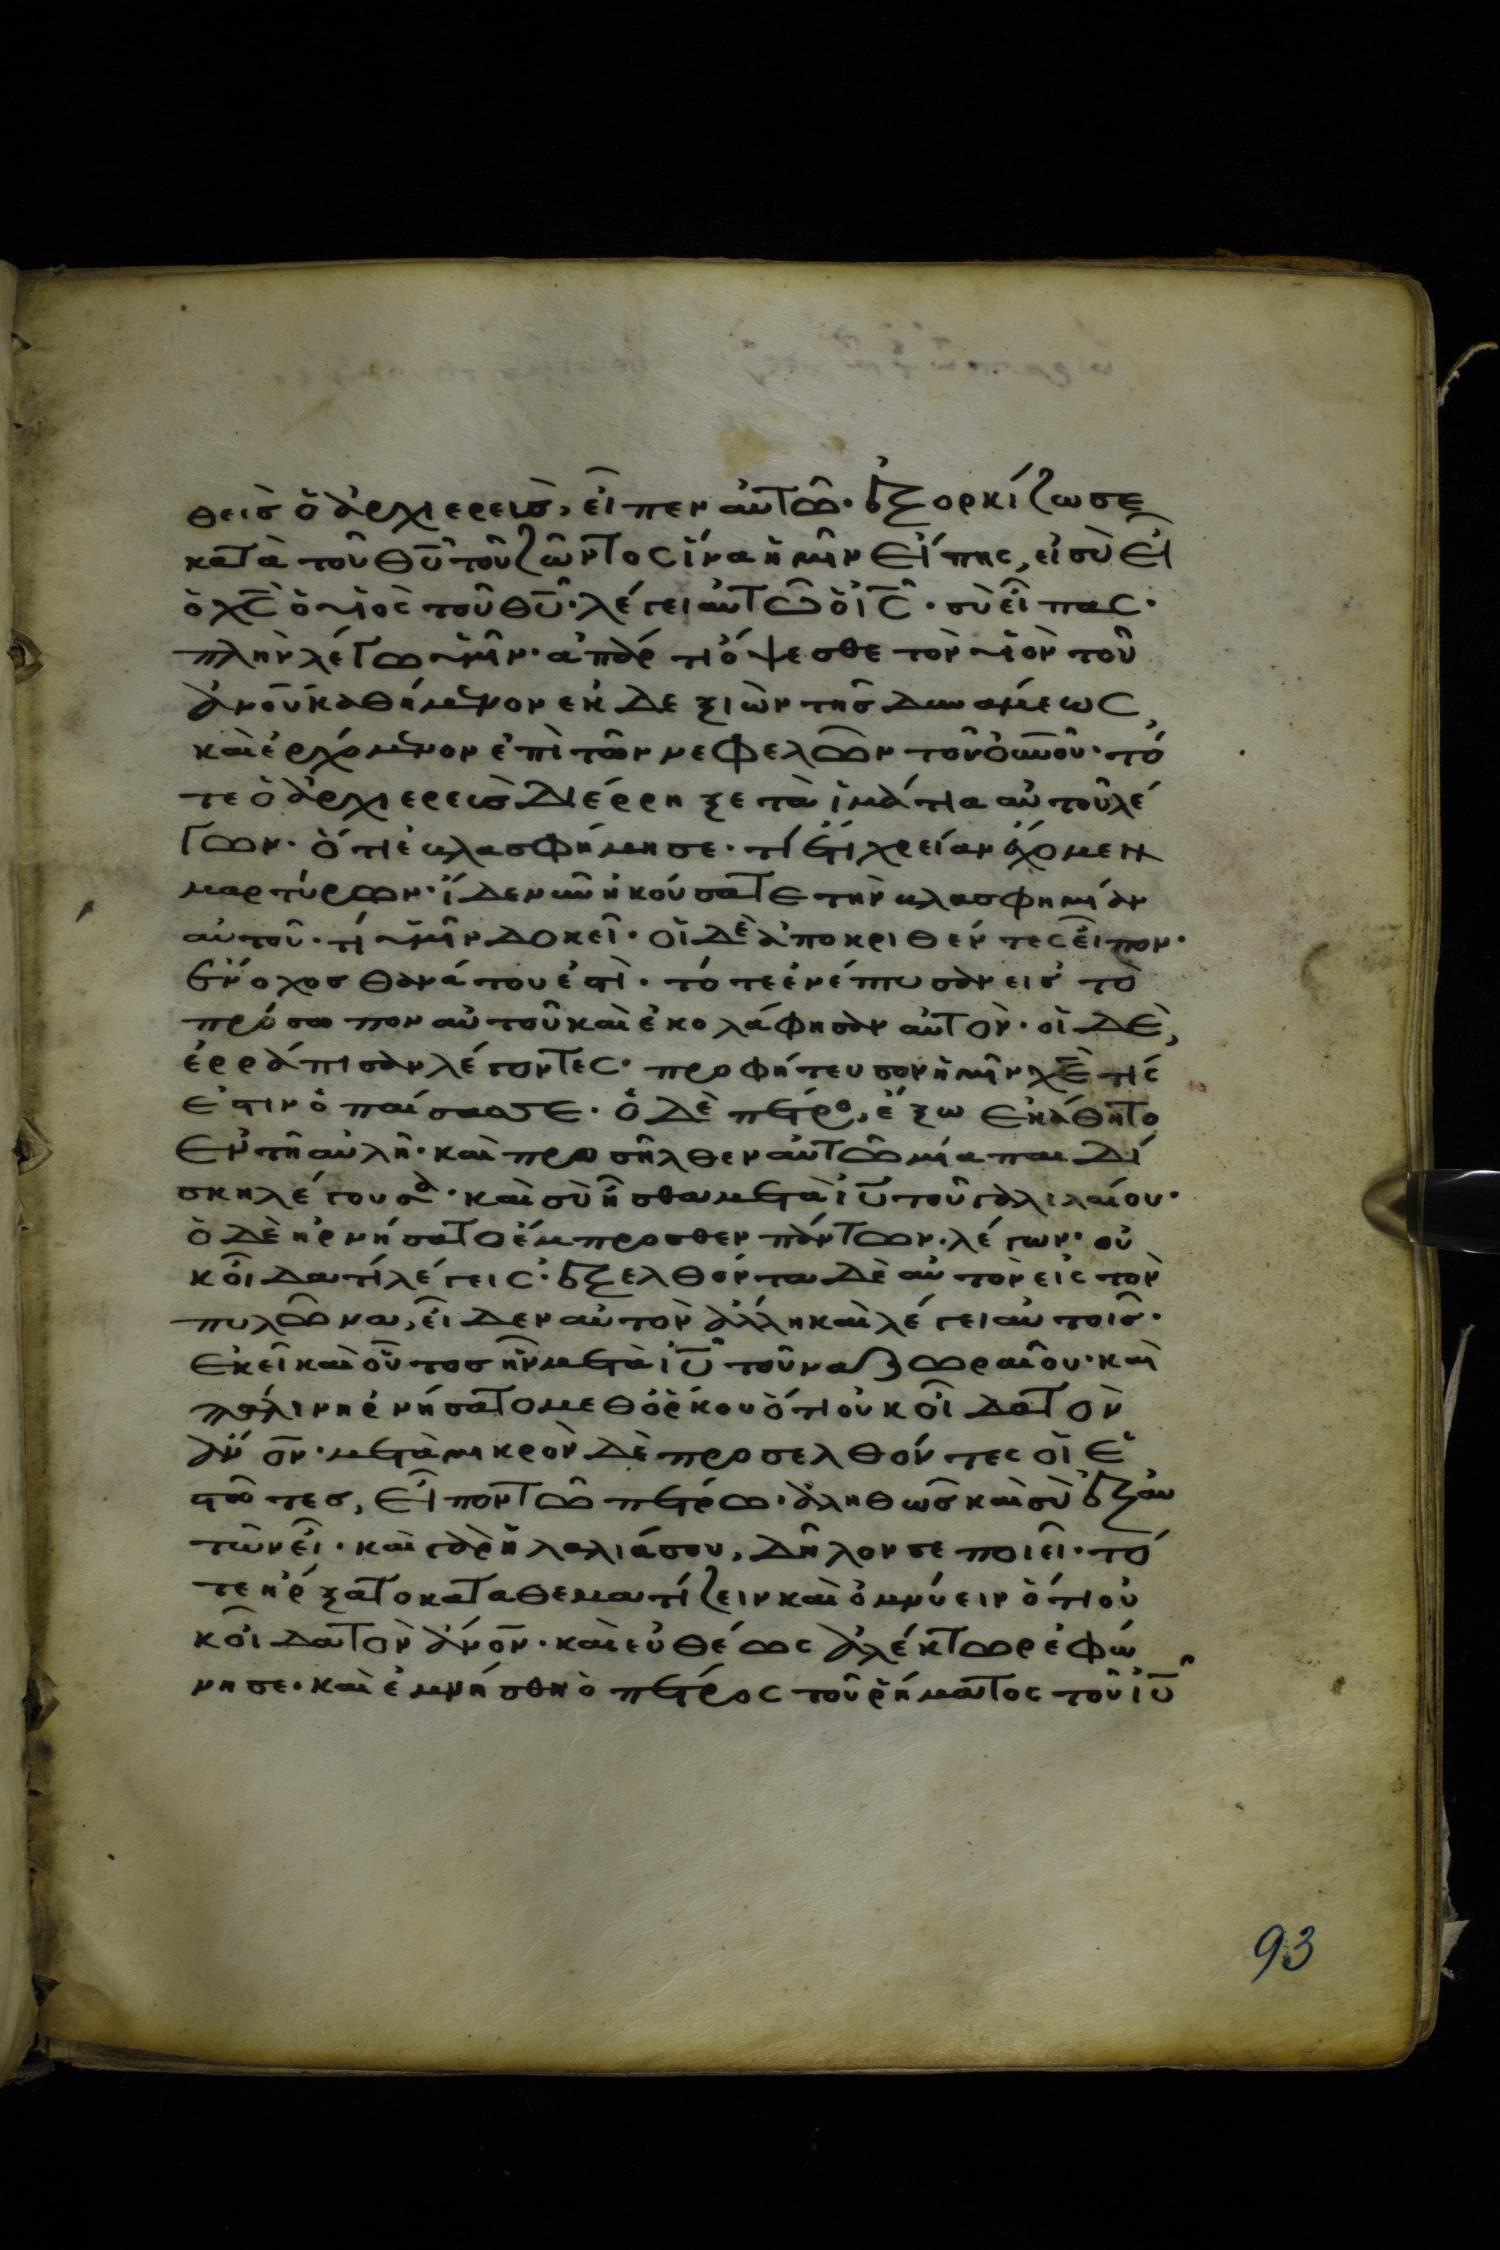 θεὶς ὁ ἀρχιερεὺς, εἶπεν αὐτῶ· ἐξορκίζω σε
κατὰ τοῦ θ̅υ̅ τοῦ ζῶντος ἵνα ἡμῖν εἴπης, εἰ σὺ εἶ
ὁ χ̅ς̅ ὁ υἱὸς τοῦ θ̅υ̅· λέγει αὐτῶ ὁ ι̅ς̅· σὺ εἶπας·
πλὴν λέγω ὑμῖν· ἀπάρτι ὄψεσθε τὸν υἱὸν τοῦ
ἀν̅ο̅υ̅ καθήμενον ἐκ δεξιῶν τῆς δυνάμεως,
καὶ ἐρχόμενον ἐπὶ τῶν νεφελῶν τοῦ ο̅υ̅νοῦ· τό
τε ὁ ἀρχιερεὺς διέρρηξε τὰ ἱμάτια αὐτοῦ λέ
γων· ὅτι ἐβλασφήμησε· τί ἔτι χρείαν ἔχομεν
μαρτύρων· ἴδε νῦν ἠκούσατε τὴν βλασφημίαν
αὐτοῦ· τί ὑμῖν δοκεῖ· οἱ δὲ ἀποκριθέντες εἶπον·
ἔνοχος θανάτου ἐστὶ· τότε ἐνέπτυσαν εἰς τὸ
πρόσωπον αὐτοῦ καὶ ἐκολάφησαν αὐτὸν· οἱ δὲ,
ἐρράπισαν λέγοντες· προφήτευσον ἡμῖν χ̅ε̅ τίς
ἐστιν ὁ παίσας σε· ὁ δὲ πέτρο, ἔξω ἐκάθητο
ἐν τῆ αὐλῆ· καὶ προσῆλθεν αὐτῶ μία παιδί
σκη λέγουσα· καὶ σὺ ἦσθα μετὰ ι̅υ̅ τοῦ γαλιλαίου·
ὁ δὲ ἠρνήσατο ἔμπροσθεν πάντων· λέγων· οὐ
κ οἶδα τί λέγεις· ἐξελθόντα δὲ αὐτὸν εἰς τὸν
πυλῶνα, εἶδεν αὐτὸν ἄλλη καὶ λέγει αὐτοῖς·
ἐκεῖ καὶ οὗτος ἦν μετὰ ι̅υ̅ τοῦ ναζωραίου· καὶ
πάλιν ἠρνήσατο μεθ ὅρκου ὅτι οὐκ οἶδα τὸν
ἀν̅ο̅ν̅· μετὰ μικρὸν δὲ προσελθόντες οἱ ἑ
στῶτες, εἶπον τῶ πέτρω· ἀληθῶς καὶ σὺ ἐξ αὐ
τῶν εἶ· καὶ γὰρ ἡ λαλιά σου, δῆλον σε ποιεῖ· τό
τε ἤρξατο καταθεματίζειν καὶ ὀμνύειν ὅτι οὐ
κ οἶδα τὸν ἀν̅ο̅ν̅· καὶ εὐθέως ἀλέκτωρ ἐφώ
νησε· καὶ ἐμνήσθη ὁ πέτρος τοῦ ῥήματος τοῦ ι̅υ̅
93